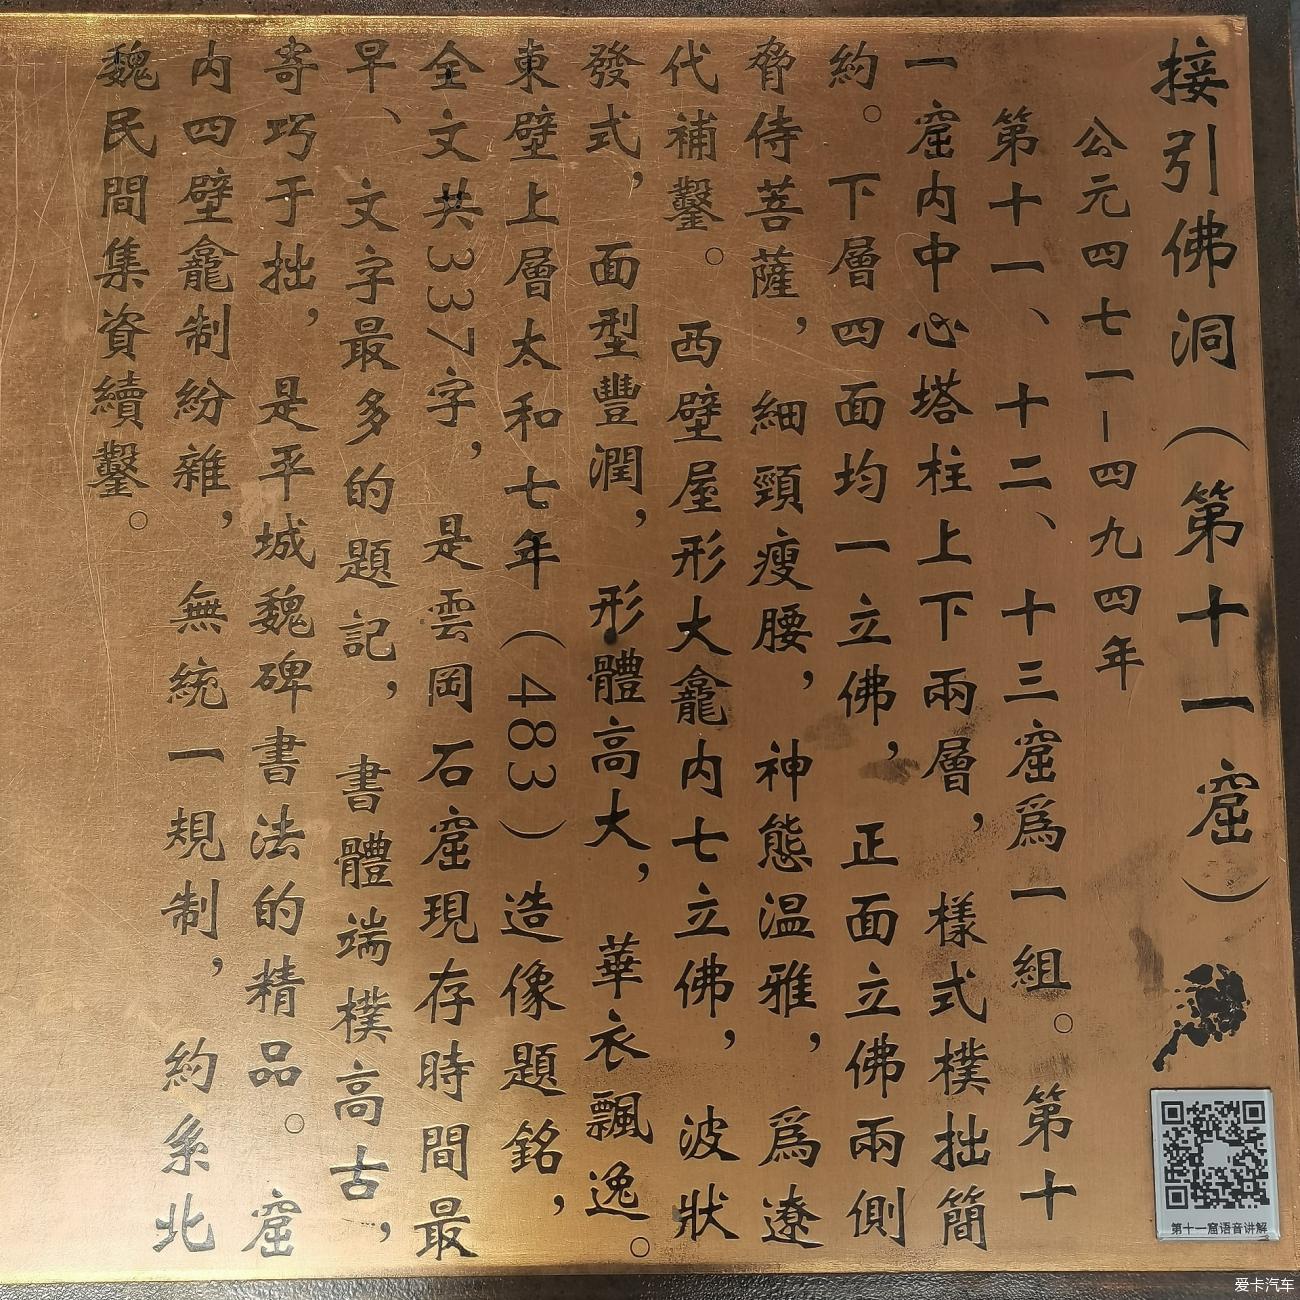 接引佛洞（第十一窟）
公元四七一－四九四年
第十一、十二、十三窟爲一組。第十
一窟内中心塔柱上下兩層，樣式樸拙簡
約。下層四面均一立佛，正面立佛兩側
脅侍菩薩，細頸瘦腰，神態温雅，爲遼
代補鑿。西壁屋形大龕内七立佛，波狀
發式，面型豐潤，形體高大，華衣飄逸。
東壁上層太和七年（483）造像題銘，
全文共337字，是雲岡石窟現存時間最
早、文字最多的題記，書體端樸高古，
寄巧于拙，是平城魏碑書法的精品。窟
内四壁龕制紛雜，無統一規制，約系北
魏民間集資續鑿。
第十一窟语音讲解
爱卡汽车